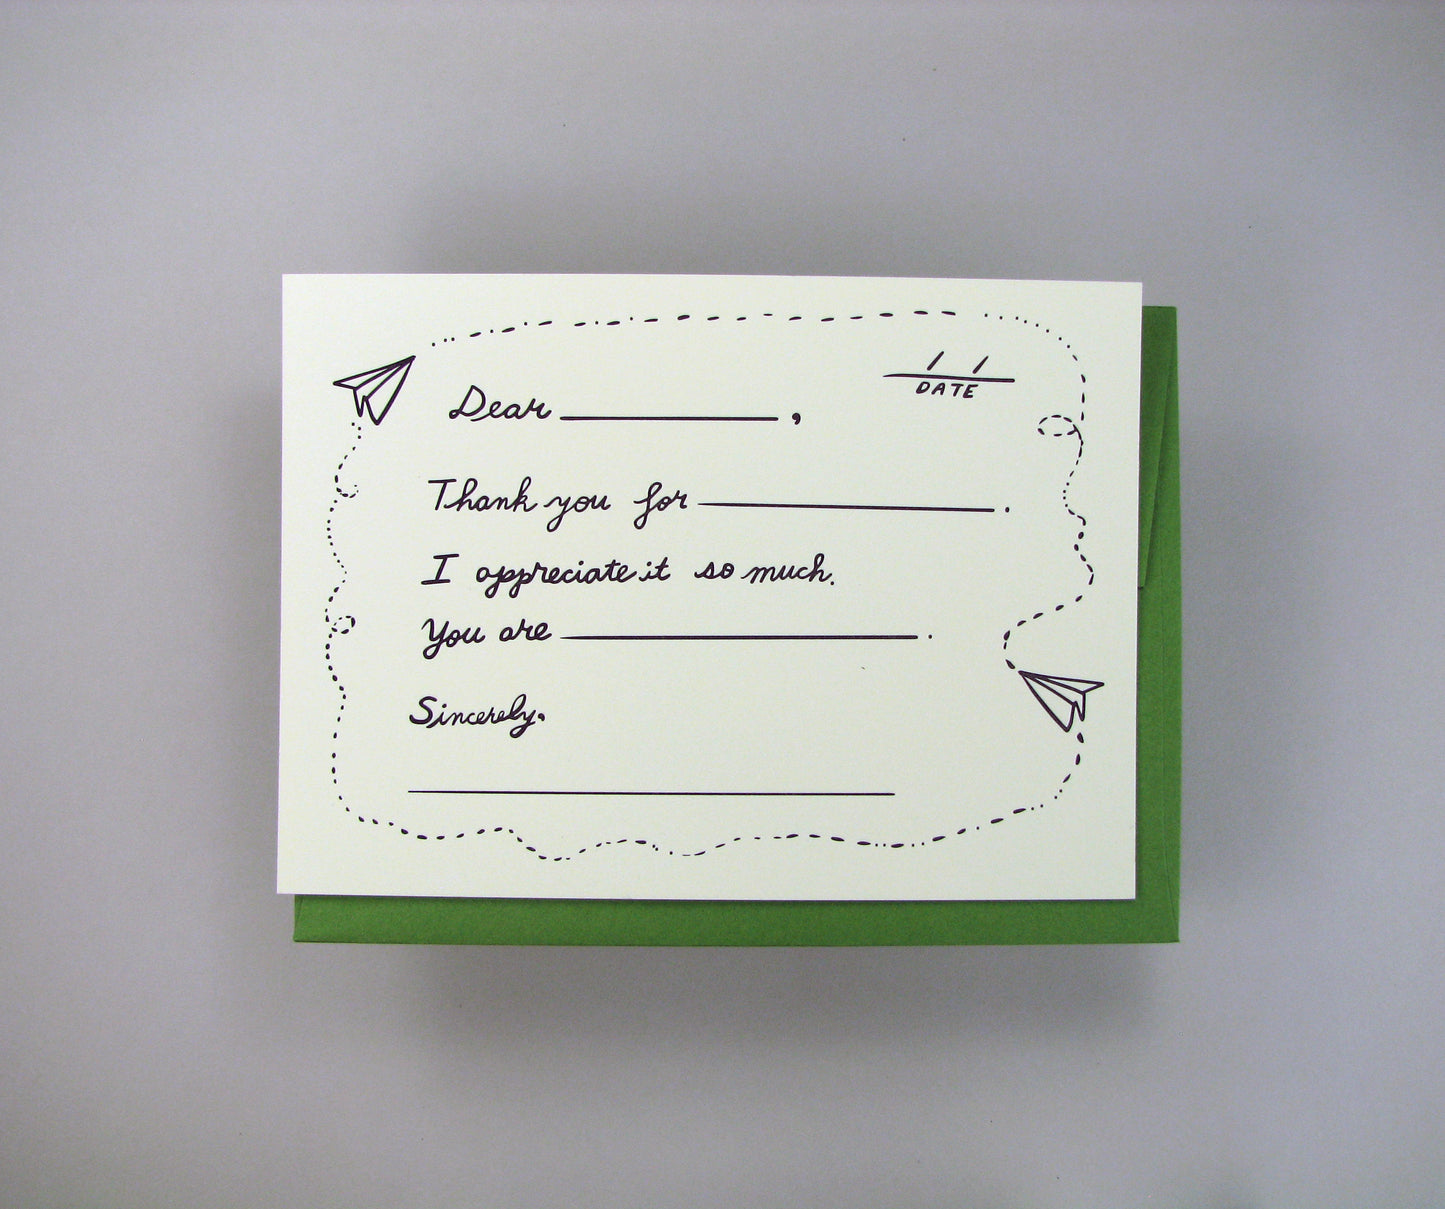 / /
DATE
Dear ____________,
Thank you for ________________.
I appreciate it so much.
You are ____________________.
Sincerely,